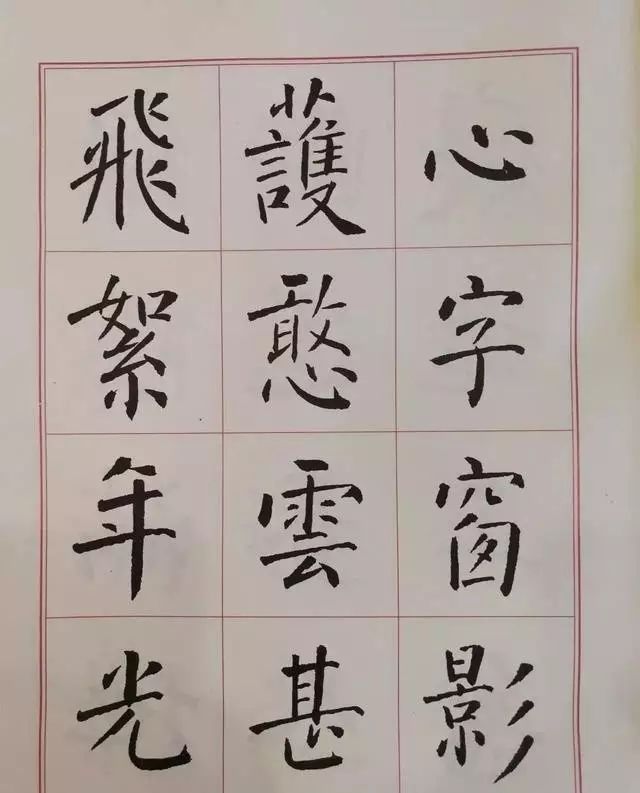 心字窗影
護憨雲甚
飛絮年光